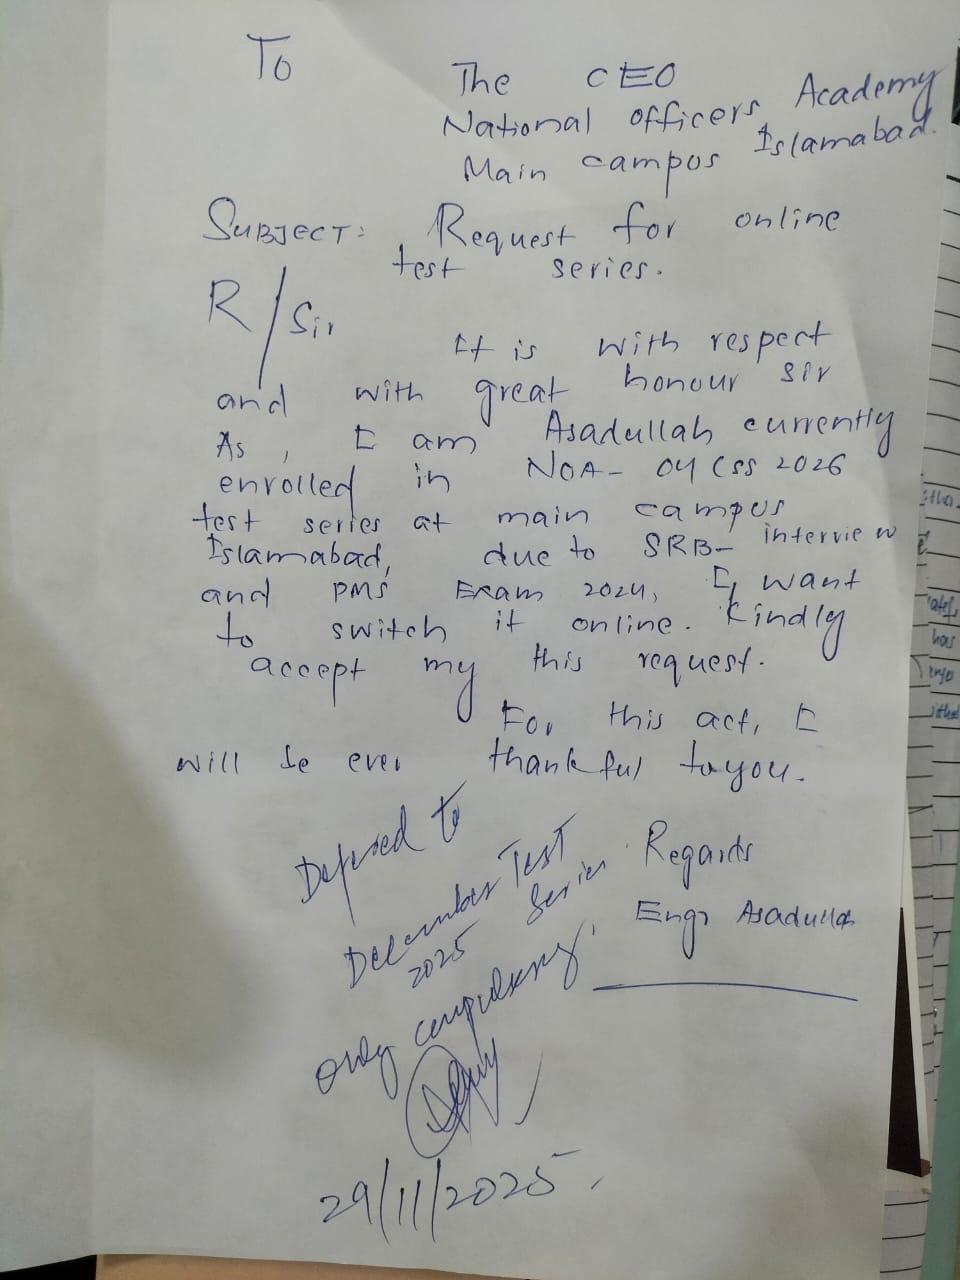 To
The CEO
National officers Academy
Main campus Islamabad.
SUBJECT: Request for online
test series.
R/Sir
It is with respect
and with great honour sir
As, I am Asadullah currently
enrolled in NOA-04 CSS 2026
test series at main campus
Islamabad, due to SRB- interview
and PMS Exam 2024, I want
to switch it online. Kindly
accept my this request.
For this act, I
will be ever thankful to you.
Regards
Engr Asadullah
Defered to
December Test
2025 Series
only compulsory.
29/11/2025.